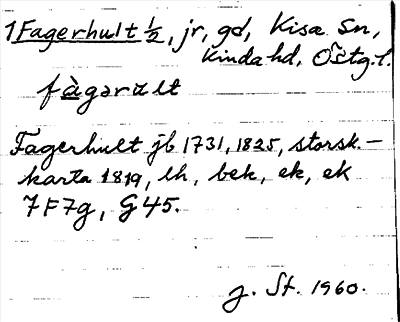 1 Fagerhult 1/2, jr, gd, Kisa sn,
Kinda hd, Östg.l.
fàgəralt
Fagerhult jb 1731, 1825, storsk.-
karta 1819, lh, bek, ek, ek
7F7g, G45.
J. St. 1960.